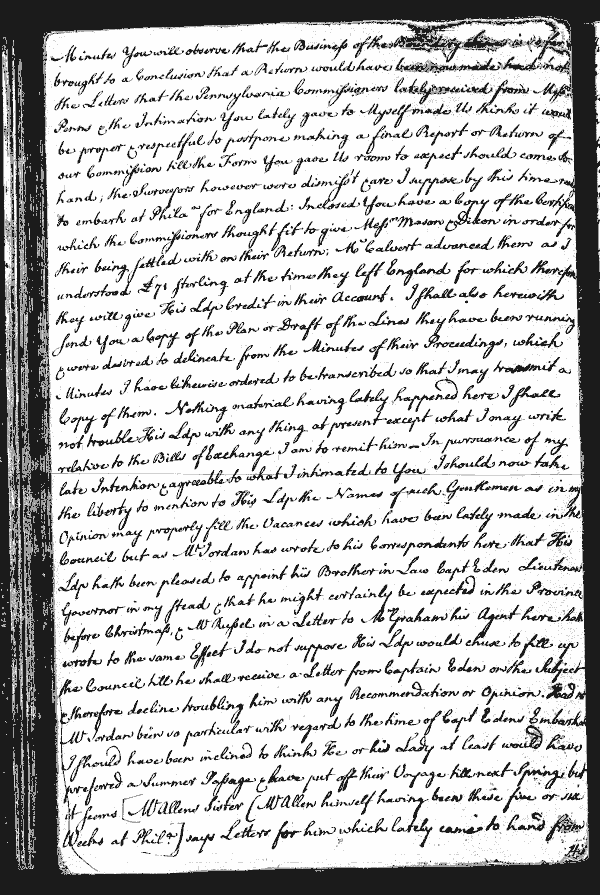 Minutes You will observe that the Business of the Boundary Lines is so far
brought to a Conclusion that a Return would have been now made had not
the Letters that the Pennsylvania Commissioners lately received from Messrs
Penns & the Intimation You lately gave to Myself made Us think it would
be proper & respectful to postpone making a final Report or Return of
our Commission till the Form You gave Us room to expect should come to
hand; the Surveyors however were dismiss't & are I suppose by this time
to embark at Phila. for England: Inclosed You have a Copy of the Certificate
which the Commissioners thought fit to give Messrs Mason & Dixon in order for
their being settled with on their Return; Mr Calvert advanced them as I
understood £71 sterling at the time they left England for which therefore
they will give His Ldp Credit in their Account. I shall also herewith
send You a Copy of the Plan or Draft of the Lines they have been running
& were desired to delineate from the Minutes of their Proceedings, which
Minutes I have likewise ordered to be transcribed so that I may transmit a
Copy of them. Nothing material having lately happened here I shall
not trouble His Ldp with any thing at present except what I may write
relative to the Bills of Exchange I am to remit him — In pursuance of my
late Intention & agreeable to what I intimated to You I should now take
the liberty to mention to His Ldp the Names of such Gentlemen as in my
Opinion may properly fill the Vacances which have been lately made in the
Council but as Mr Jordan has wrote to his Correspondents here that His
Ldp hath been pleased to appoint his Brother in Law Capt Eden Lieutenant
Governor in my stead & that he might certainly be expected in the Province
before Christmass, & Mr Russel in a Letter to Mr Graham his Agent here hath
wrote to the same Effect I do not suppose His Ldp would chuse to fill up
the Council till he shall receive a Letter from Captain Eden on the Subject
& therefore decline troubling him with any Recommendation or Opinion. Had not
Mr Jordan been so particular with regard to the time of Capt Edens Embarka
I should have been inclined to think He or his Lady at least would have
preferred a Summer Passage & have put off their Voyage till next Spring, but
it seems [Mr Allens Sister (Mr Allen himself having been these five or six
Weeks at Phila.] says Letters for him which lately came to hand from